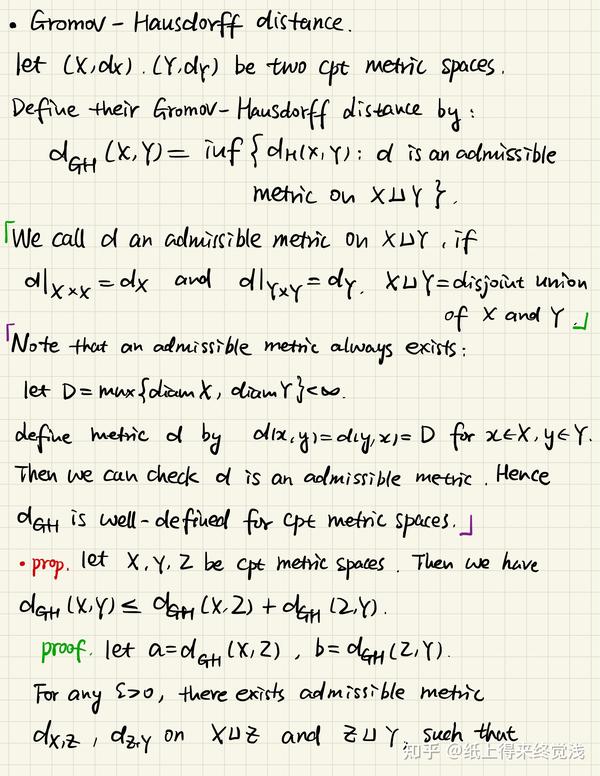 • Gromov-Hausdorff distance.
let (X,dx). (Y,dY) be two cpt metric spaces.
Define their Gromov-Hausdorff distance by:
dGH(X,Y) = inf { dH(X,Y): d is an admissible
metric on X⊔Y }.
「We call d an admissible metric on X⊔Y, if
d|X×X = dX and d|Y×Y = dY. X⊔Y = disjoint union
of X and Y.」
「Note that an admissible metric always exists:
let D = max{diam X, diam Y} < ∞.
define metric d by d(x,y) = d(y,x) = D for x∈X, y∈Y.
Then we can check d is an admissible metric. Hence
dGH is well-defined for cpt metric spaces.」
• prop. let X, Y, Z be cpt metric spaces. Then we have
dGH(X,Y) ≤ dGH(X,Z) + dGH(Z,Y).
proof. let a = dGH(X,Z), b = dGH(Z,Y).
For any ε>0, there exists admissible metric
dX,Z, dZ,Y on X⊔Z and Z⊔Y, such that
知乎 @纸上得来终觉浅